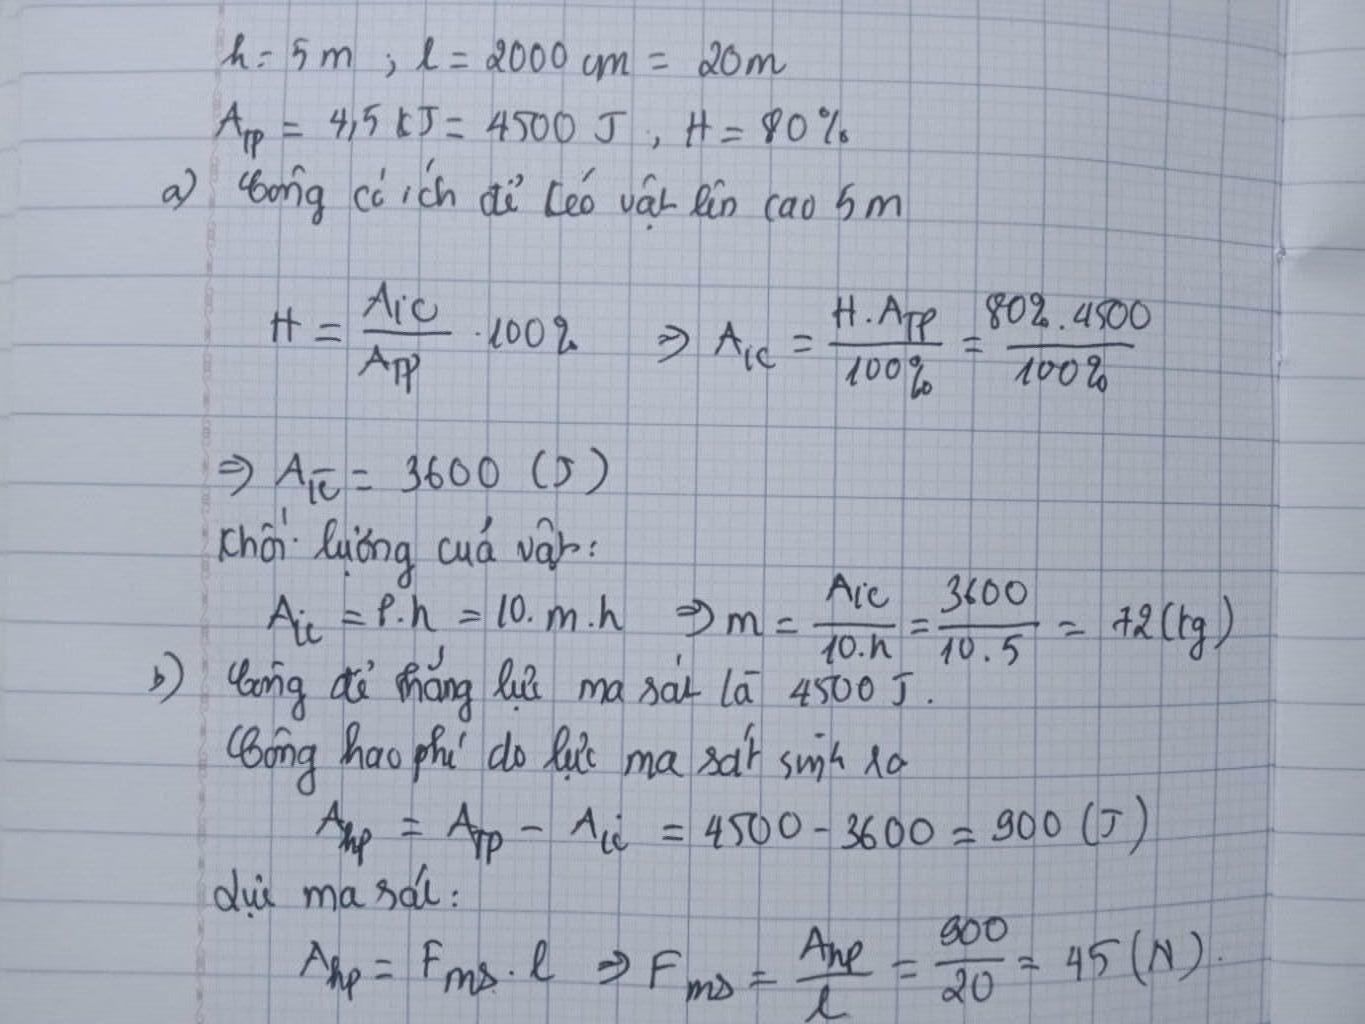 h = 5 m ; l = 2000 cm = 20m
A_TP = 4,5 kJ = 4500 J , H = 80%
a) Công có ích để kéo vật lên cao 5 m
H = A_ic / A_TP . 100% ⇒ A_ic = H . A_TP / 100% = 80% . 4500 / 100%
⇒ A_ic = 3600 (J)
Khối lượng của vật:
A_ic = P.h = 10. m. h ⇒ m = A_ic / 10.h = 3600 / 10.5 = 72 (kg)
b) Công để thắng lực ma sát là 4500 J.
Công hao phí do lực ma sát sinh ra
A_hp = A_TP - A_ic = 4500 - 3600 = 900 (J)
Lực ma sát:
A_hp = F_ms . l ⇒ F_ms = A_hp / l = 900 / 20 = 45 (N).